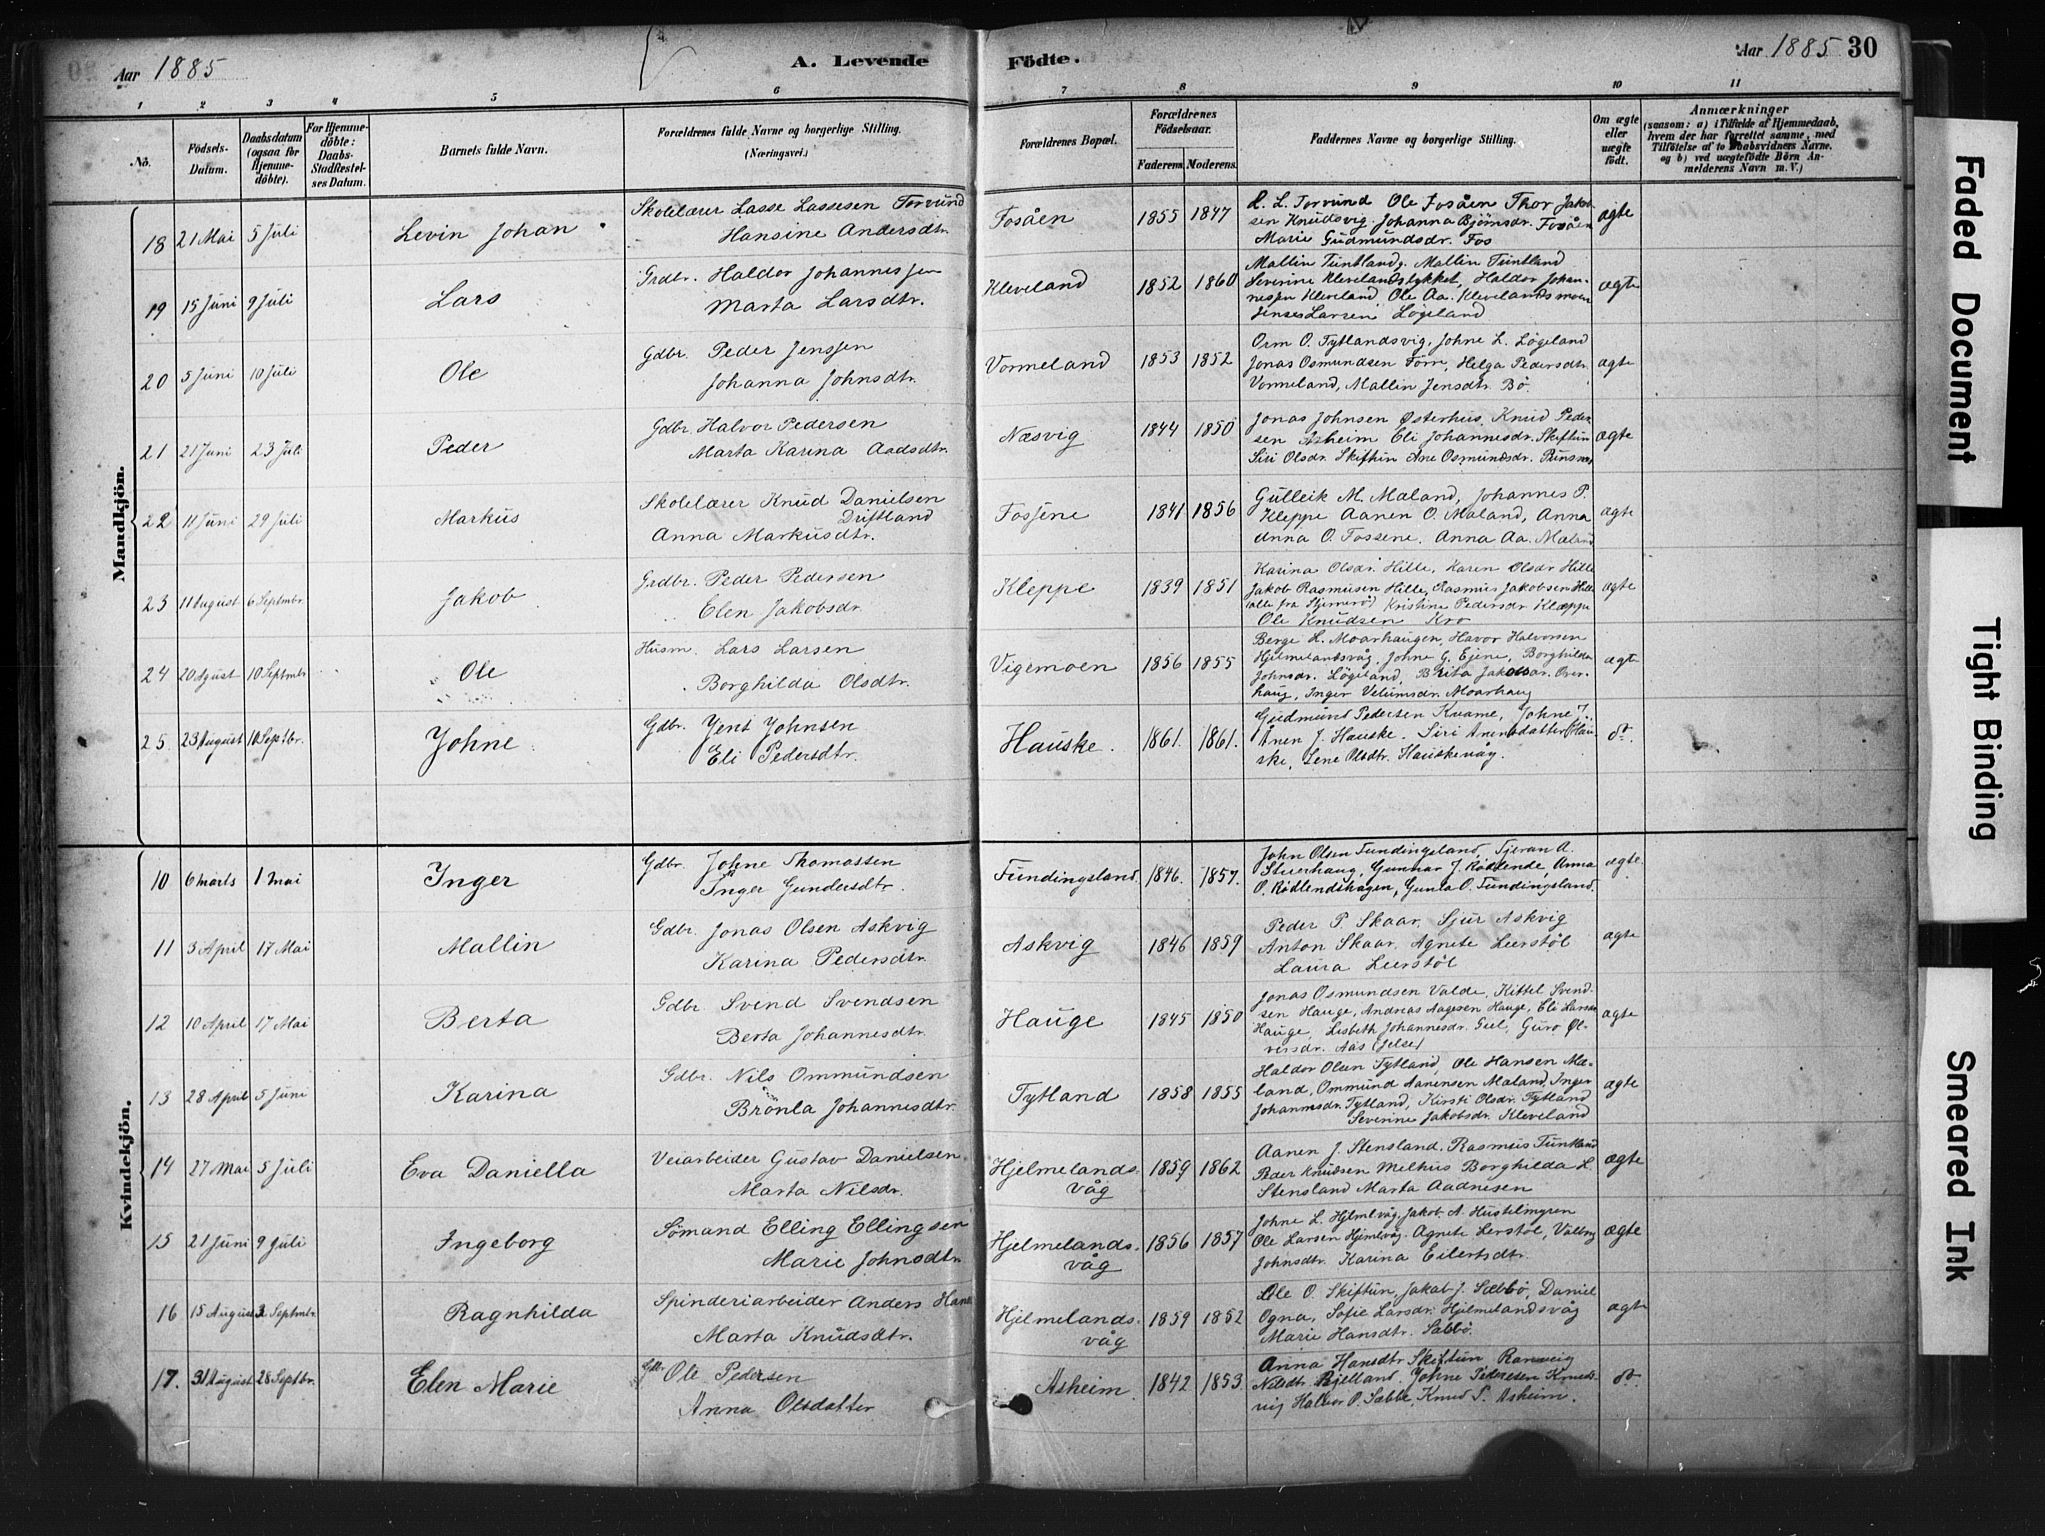 Aar 1885
A. Levende
Födte.
Aar 1885 30
1 2 3 4 5 6 7 8 9 10 11
No.
Födsels-Datum.
Daabsdatum (ogsaa for Hjemme-döbte).
For Hjemme-döbte: Daabs-Stadfæstel-ses Datum.
Barnets fulde Navn.
Forældrenes fulde Navne og borgerlige Stilling. (Næringsvei.)
Forældrenes Bopæl.
Forældrenes Födselsaar.
Faderens Moderens.
Faddernes Navne og borgerlige Stilling.
Om ægte eller uægte födt.
Anmærkninger
(saasom: a) i Tilfælde af Hjemmedaab, hvem der har forrettet samme, med Tilföielse af to Daabsvidners Navne, og b) ved uægtefödte Börn An-melderens Navn m. V.)
Mandkjön.
18 21 Mai 5 Juli Levin Johan Skolelærer Lasse Lassesen Torvund
Hansine Andersdtr. Fosåen 1855 1847
L. L. Torvund Ole Fosåen Thor Jakob-
sen Knudsvig Johanna Bjørnsdr. Fosåen
Marie Gudmundsdr. Fos
ægte
19 15 Juni 9 Juli Lars Grdbr. Haldor Johannessen
Marta Larsdtr. Kleveland 1852 1860
Mallin Tuntland, Mallin Tuntland
Severine Klevelandstykket, Haldor Johan-
nessen Kleveland, Ole Aa. Klevelandsmoen
Jenses Larsen Løgeland
ægte
20 5 Juni 10 Juli Ole Gdbr. Peder Jenssen
Johanna Johnsdtr. Vormeland 1853 1852
Orm O. Tytlandsvig, Johne L. Løgeland
Jonas Osmundsen Førre, Helga Pedersdtr.
Vormeland, Mallin Jensdtr. Bø
ægte
21 21 Juni 23 Juli Peder Gdbr. Halvor Pedersen
Marta Karina Aadsdtr. Næsvig 1844 1850
Jonas Johnsen Østerhus, Knud Peder-
sen Asheim Eli Johannesdr. Skiftun
Siri Olsdr. Skiftun Ane Osmundsdr.
ægte
22 11 Juni 29 Juli Markus Skolelærer Knud Danielsen
Driftland
Anna Markusdtr. Fossene 1841 1856
Gulleik M. Mæland, Johannes P.
Kleppe Aanen O. Mæland, Anna
Anna O. Fossene. Anna Aa. Mæland
ægte
23 11 August 6 Septmbr. Jakob Grdbr. Peder Pedersen
Elen Jakobsdr. Kleppe 1839 1851
Karina Olsdr. Hille, Karen Olsdr Hille
Jakob Rasmusen Hille, Rasmus Jakobsen Hille
(alle fra Stjernerö) Kristine Pedersdr Kleppe
Ole Knudsen Kro
ægte
24 20 Agust 10 Septmbr Ole Husm. Lars Larsen
Borghilda Olsdtr. Vigemoen 1856 1855
Berge L. Moarhaugen, Havor Halvorsen
Hjelmelandsvåg, Johne G. Ejene, Borghilda
Johnsdr. Løgeland, Brita Jakobsdr. Over-
haug, Inger Velumsdr. Moarhaug
ægte
25. 23 August 10 Septbr. Johne Gdbr. Jens Johnsen
Eli Pedersdtr. Hauske. 1861. 1861.
Gudmund Pedersen Kvame, Johne J.
Ånen J. Hauske. Siri Anensdatter Hau-
ske, Lene Olsdtr. Hauskevåg.
do.
Kvindekjön.
10 6 marts 1 mai Inger Gdbr. Johne Thomassen
Inger Gundersdtr. Fundingsland. 1846. 1857.
John Olsen Fundingsland, Tjeran A.
Stuerhaug, Gunnar J. Rödlende, Anna
O. Rödlendshagen, Gunla O. Fundingsland.
ægte
11 3 April 17 Mai Mallin Gdbr. Jonas Olsen Askvig
Karina Pedersdtr. Askvig 1846 1859
Peder P. Skaar, Sjur Askvig
Anton Skaar, Agnete Leerstöl
Laura Leerstöl
ægte
12 10 April 17 Mai Berta Gdbr Svend Svendsen
Berta Johannesdtr. Hauge 1845 1850
Jonas Osmundsen Valde, Kittel Svend-
sen Hauge, Andreas Aagesen Hauge, Eli Larsdr
Hauge, Lisbeth Johannesdr. Giel, Guro Øl-
versdr. Aas (Jelse)
ægte
13 28 April 5 Juni Karina Gdbr. Nils Ommundsen
Brønla Johannesdtr. Tytland 1858 1855
Haldor Olsen Tytland, Ole Hansen Mæ-
land, Ommund Aanensen Mæland, Inger
Johannesdr. Tytland, Kirsti Olsdr. Tytland
Severine Jakobsdr. Kleveland
ægte
14 27 Mai 5 Juli Eva Daniella Veiarbeider Gustav Danielsen.
Marta Nilsdr. Hjelmelands-
våg 1859 1862
Aanen J. Stensland, Rasmus Tuntland
Peder Knudsen Melhus Borghilda L.
Stensland Marta Aadnesen
ægte
15 21 Juni 9 Juli Ingeborg Sømand Elling Ellingsen
Marie Johnsdtr. Hjelmelands-
våg 1856 1857
Johne L. Hjlmlvåg, Jakob A. Hustelmyren
Ole Larsen Hjmlvåg. Agnete Lerstöl, Valborg
Johnsdtr. Karina Eilertsdtr.
ægte
16 15 August 3 Septmbr. Ragnhilda Spinderiarbeider Anders
Marta Knudsdtr. Hjelmelands-
våg 1859 1852
Ole O. Skiftun, Jakob J. Sæbbö, Daniel
Ogna, Sofie Larsdr. Hjelmelandsvåg
Marie Hansdtr. Sabbö.
ægte
17. 31 August 28 Septbr. Elen Marie Gdbr Ole Pedersen
Anna Olsdatter Asheim. 1842 1853
Anna Hansdtr Skiftun Ranveig
Nilsdtr. Bjelland. Johne Pedersen Knuds-
vig Halvor O. Sabbe, Knud P. Asheim.
do
Faded Document
Tight Binding
Smeared Ink